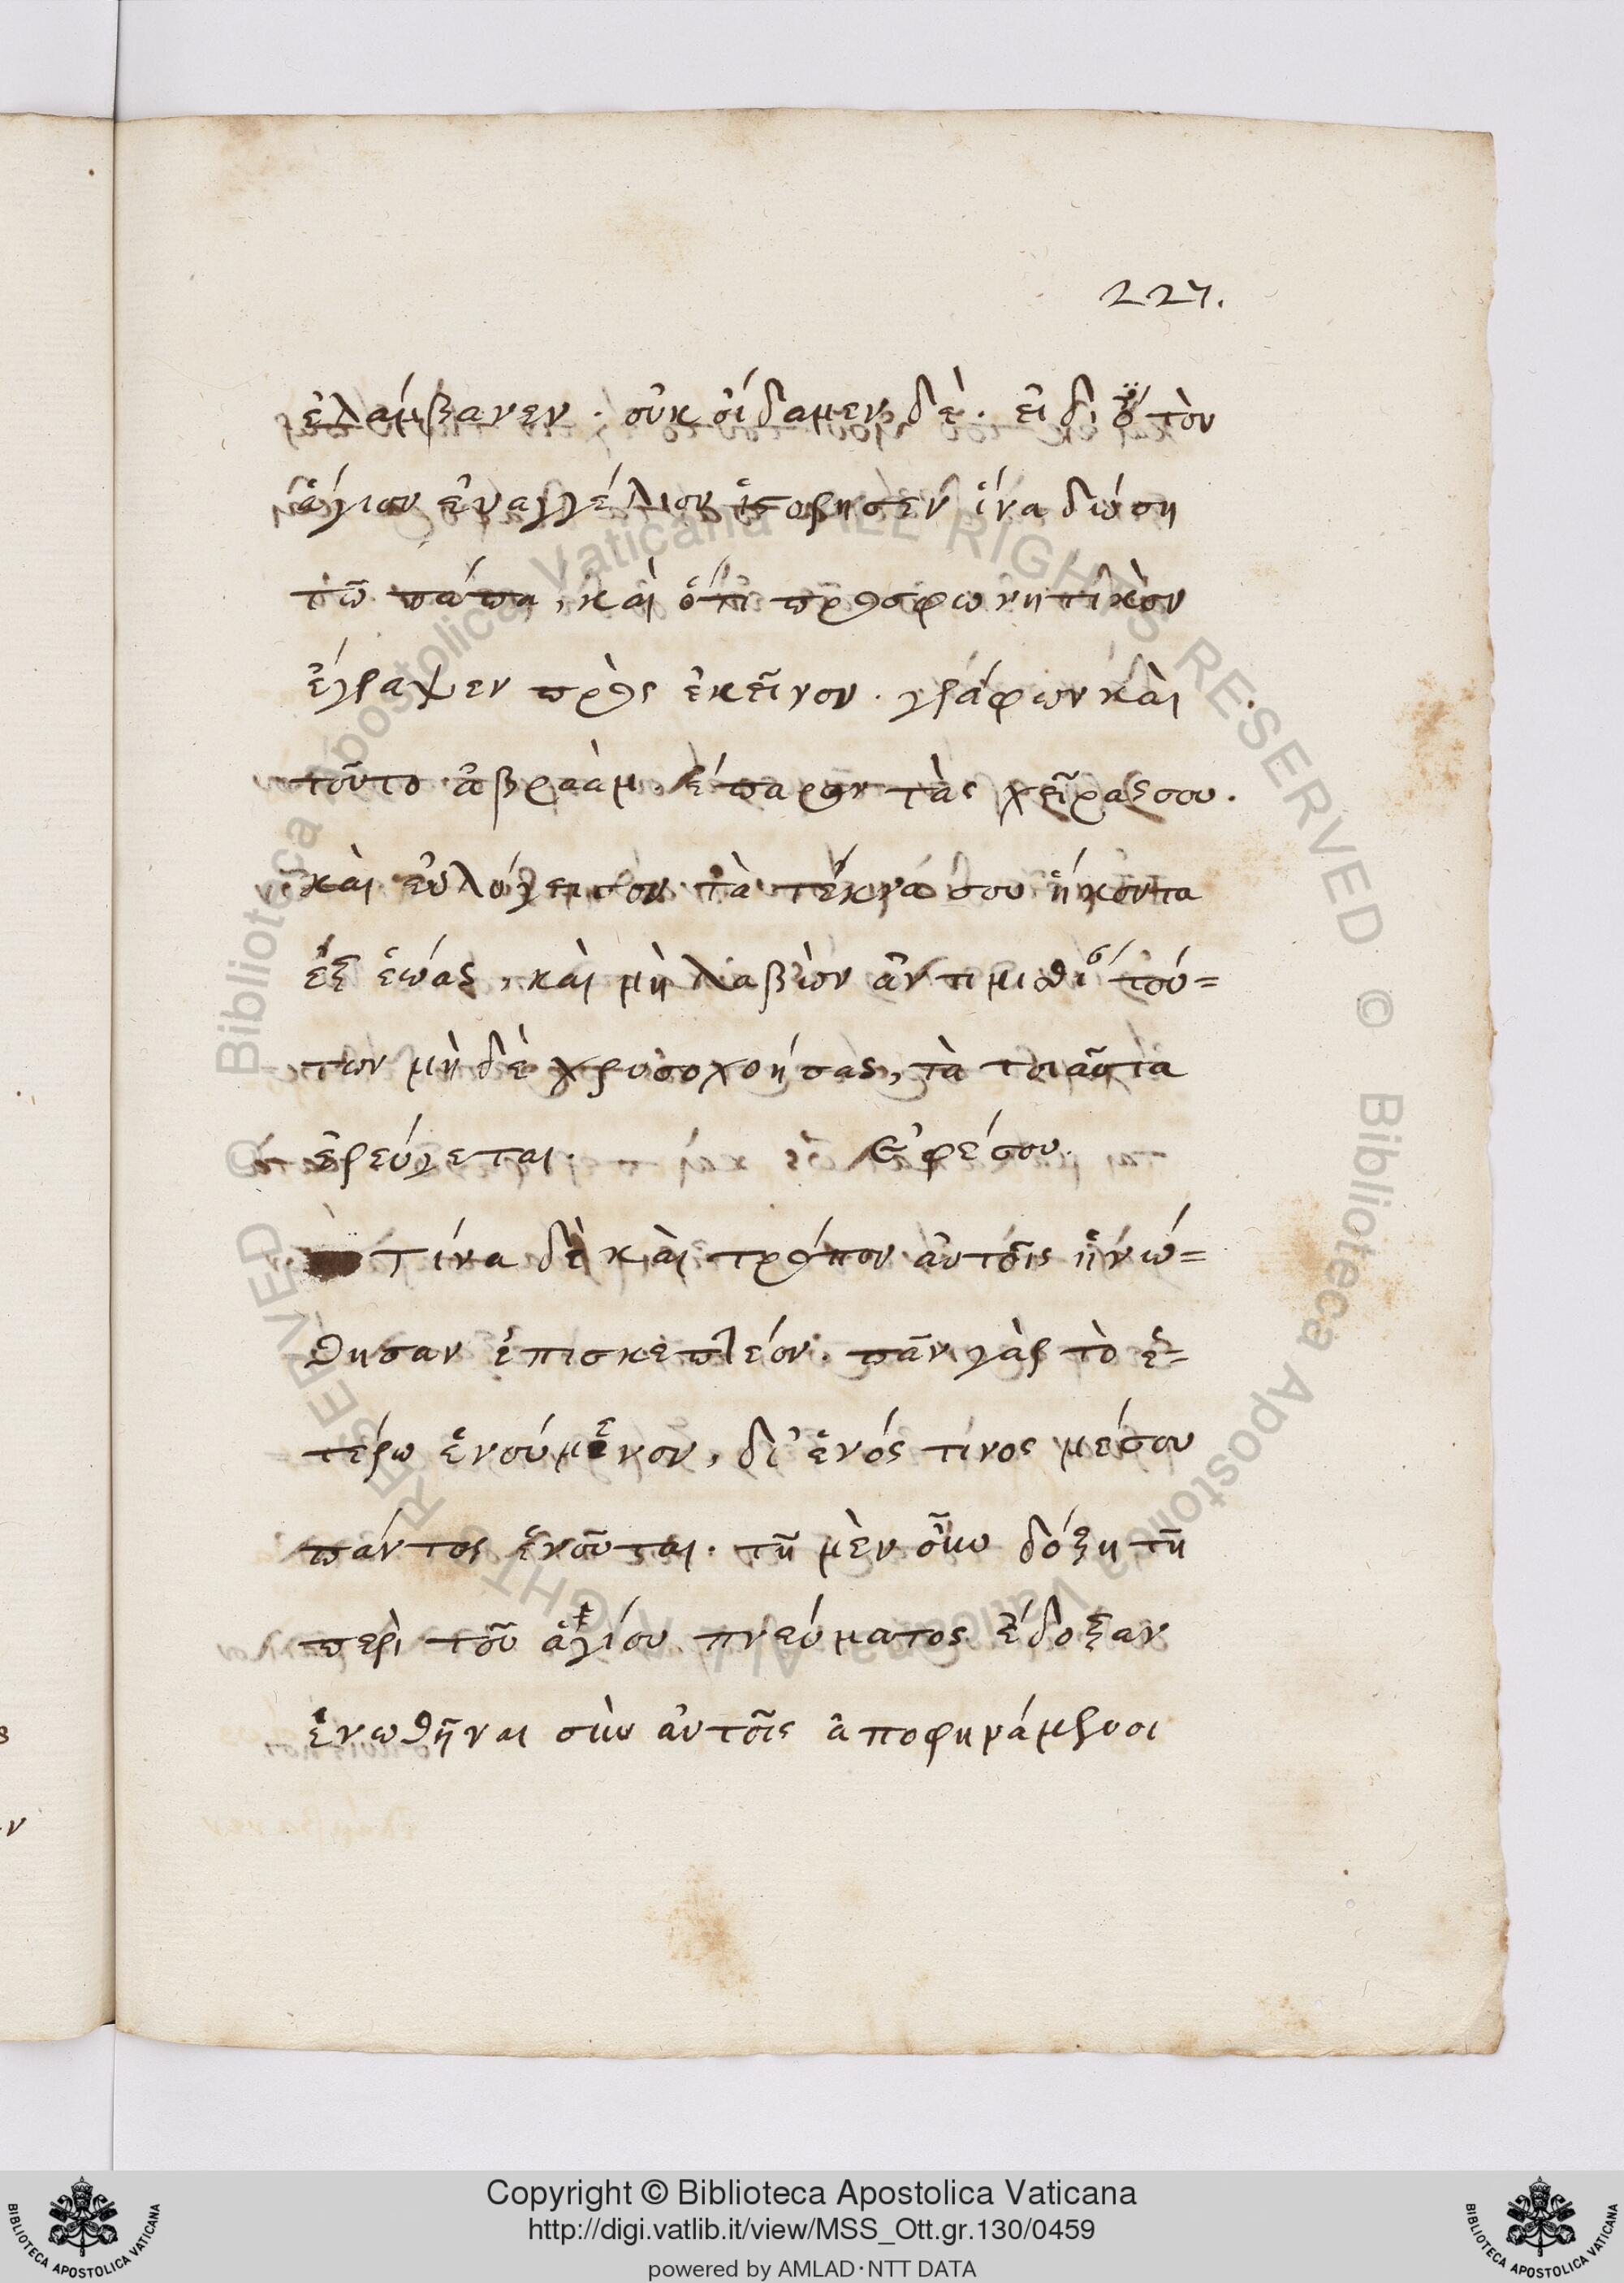 227.
ἐλάμβανεν. οὐκ οἴδαμεν δὲ. εἰ δι ὃ τὸν
ἅγιον εὐαγγέλιον ἱστόρησεν ἵνα δώση
τῶ πάπα, καὶ ὅτι προσφωνητικὸν
ἔγραψεν πρὸς ἐκεῖνον. γράφων καὶ
τοῦτο ἀβραὰμ ἔπαρον τὰς χεῖρας σου.
καὶ εὐλόγησον τὰ τέκνα σου ἥκοντα
ἐξ ἑώας, καὶ μὴ λαβὼν ἀντιμισθί τού=
των μὴ δὲ χρυσοχοήσας, τὰ τοιαῦτα
ἐρεύγεται. Ἐφέσου.
Τίνα δὲ καὶ τρόπον αὐτοῖς ἡνώ=
θησαν ἐπισκεπτέον. πᾶν γὰρ τὸ ἑ=
τέρω ἑνούμενον, δι' ἑνός τινος μέσου
πάντος ἑνοῦται. τῆ μὲν οὖν δόξη τῆ
περὶ τοῦ ἁγίου πνεύματος ἔδοξαν
ἑνωθῆναι σὺν αὐτοῖς ἀποφηνάμενοι
Copyright © Biblioteca Apostolica Vaticana
http://digi.vatlib.it/view/MSS_Ott.gr.130/0459
powered by AMLAD·NTT DATA
BIBLIOTECA APOSTOLICA VATICANA
BIBLIOTECA APOSTOLICA VATICANA